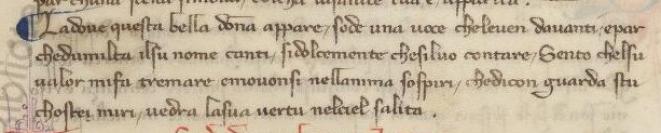 Ladove questa bella dōna appare, sode una voce cheleven davanti, epar
chedumilta ilsu nome canti, sidolcemente chesilvo contare, Sento chelsu
valor mi fa tremare emovonsi nellanima sospiri, chedicon guarda stu
chostei miri, vedra lasua vertu nelciel salita.